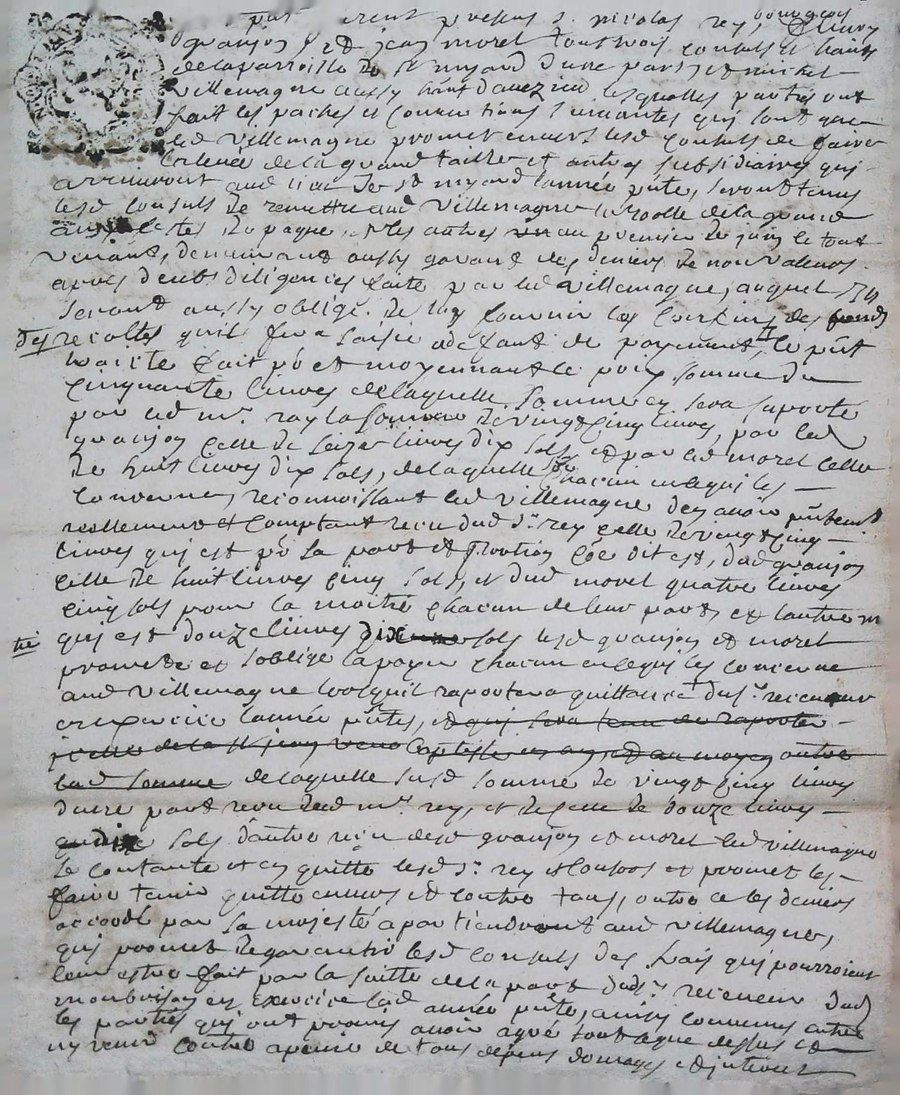 presens s. nicolas rey bourgeois
granjon et jean morel tous trois consuls et hants
de la parroisse de st myard d'une part, et michel
villemagne aussy hant d'auezieu lesquelles parties ont
fait les paches et conventions suivantes qui sont que
led villemagne promet envers lesd consuls de faire
la levée de la grand taille et autres subsidiaires qui
arriueront aud lieu de st myard l'année pnte, seront tenus
lesd consuls de remettre aud villemagne le rolle de la grand
de paque, et les autres au premier de juin le tout
venant, demeurant aussy garand des deniers de non valeurs
apres deubs diligences faite par led villemagne, auquel
seront aussy obligé de luy fournir les des
des recoltes qu'il fera saisir adefaut de payement, le pnt
traitte fait pñt moyennant le prix somme de
cinquante livres de laquelle somme en sera suporté
par led mr. rey la somme de vingt cinq livres, par led
granjon celle de seize livres dix sols, et par led morel celle
de huit livres dix sols, de laquelle chacun en ce qui les
concerne, reconnoissant led villemagne d'en avoir pntement
reellement et comptant receu dud sr. rey celle de vingt cinq
livres qui est pr sa part et portion côe dit est, dud granjon
celle de huit livres cinq sols, et dud morel quatre livres
cinq sols pour la moitié chacun de leur part, et l'autre m
tié qui est douze livres dix sols lesd granjon et morel
promette et s'oblige la payer chacun en ce qui les concerne
aud villemagne lorsquil raportera quittance du sr. receveur
en exercice l'année pnte, et qui sera tenu de raporter
outre
lad somme de laquelle susd somme de vingt cinq livres
d'une part receu dud mr. rey, et de celle de douze livres
dix sols d'autre reçu desd granjon et morel led villemagne
se contante et en quitte lesd sr. rey et consors et promet les
faire tenir quitte envers et contre tous, outre ce les deniers
accordé par sa majesté apartiendront aud villemagne,
qui promet de garantir lesd consuls des frais qui pourroient
leur estre fait par la faitte de la part dud sr receveur dud
montbrison en exercice lad année pnte, ainsy convenu entre
les parties qui ont promis avoir agreé tout ce que dessus et
ny venir contre apeine de tous depens domages et interest